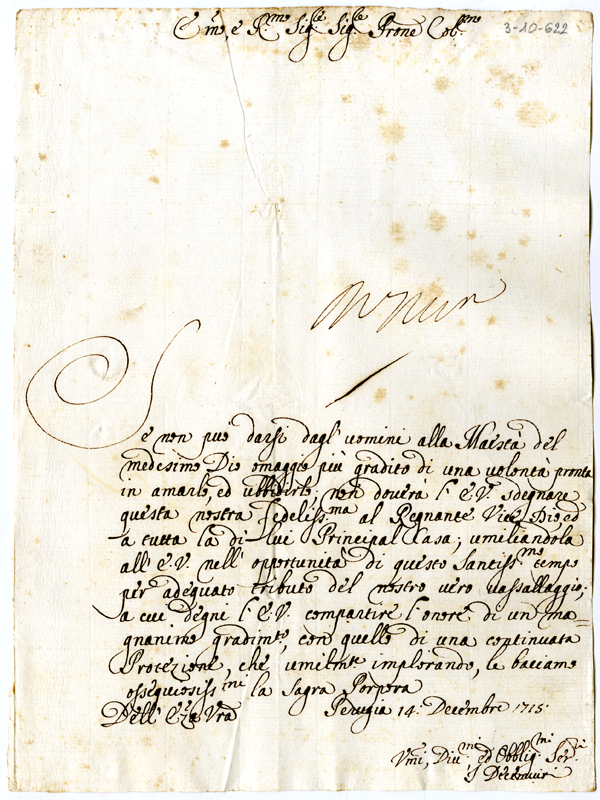 E.mo e R.mo Sig.re Sig.re Prone Col.mo
3-10-622
Se non puo darsi dagl' uomini alla Maestà del
medesimo Dio omaggio più gradito di una volontà pronta
in amarlo, ed ubbidirlo; non douerà l' E.V. sdegnare
questa nostra fedeliss.ma al Regnante Vice Dio, ed
a tutta la di lui Principal Casa; umiliandola
all' E.V. nell' opportunità di questo Santiss.mo tempo
per adequato tributo del nostro uero uassallaggio;
a cui degni l' E.V. compartire l' onore di un ma=
gnanimo gradim.to, con quello di una continuata
Protezione, che umilm.te implorando, le baciamo
ossequiosiss.mi la Sagra Porpora
Dell' E.za Vra Perugia 14: Decembre 1715.
Vmi, Diu.mi ed Obblig.mi Ser.ri
I Decemuiri